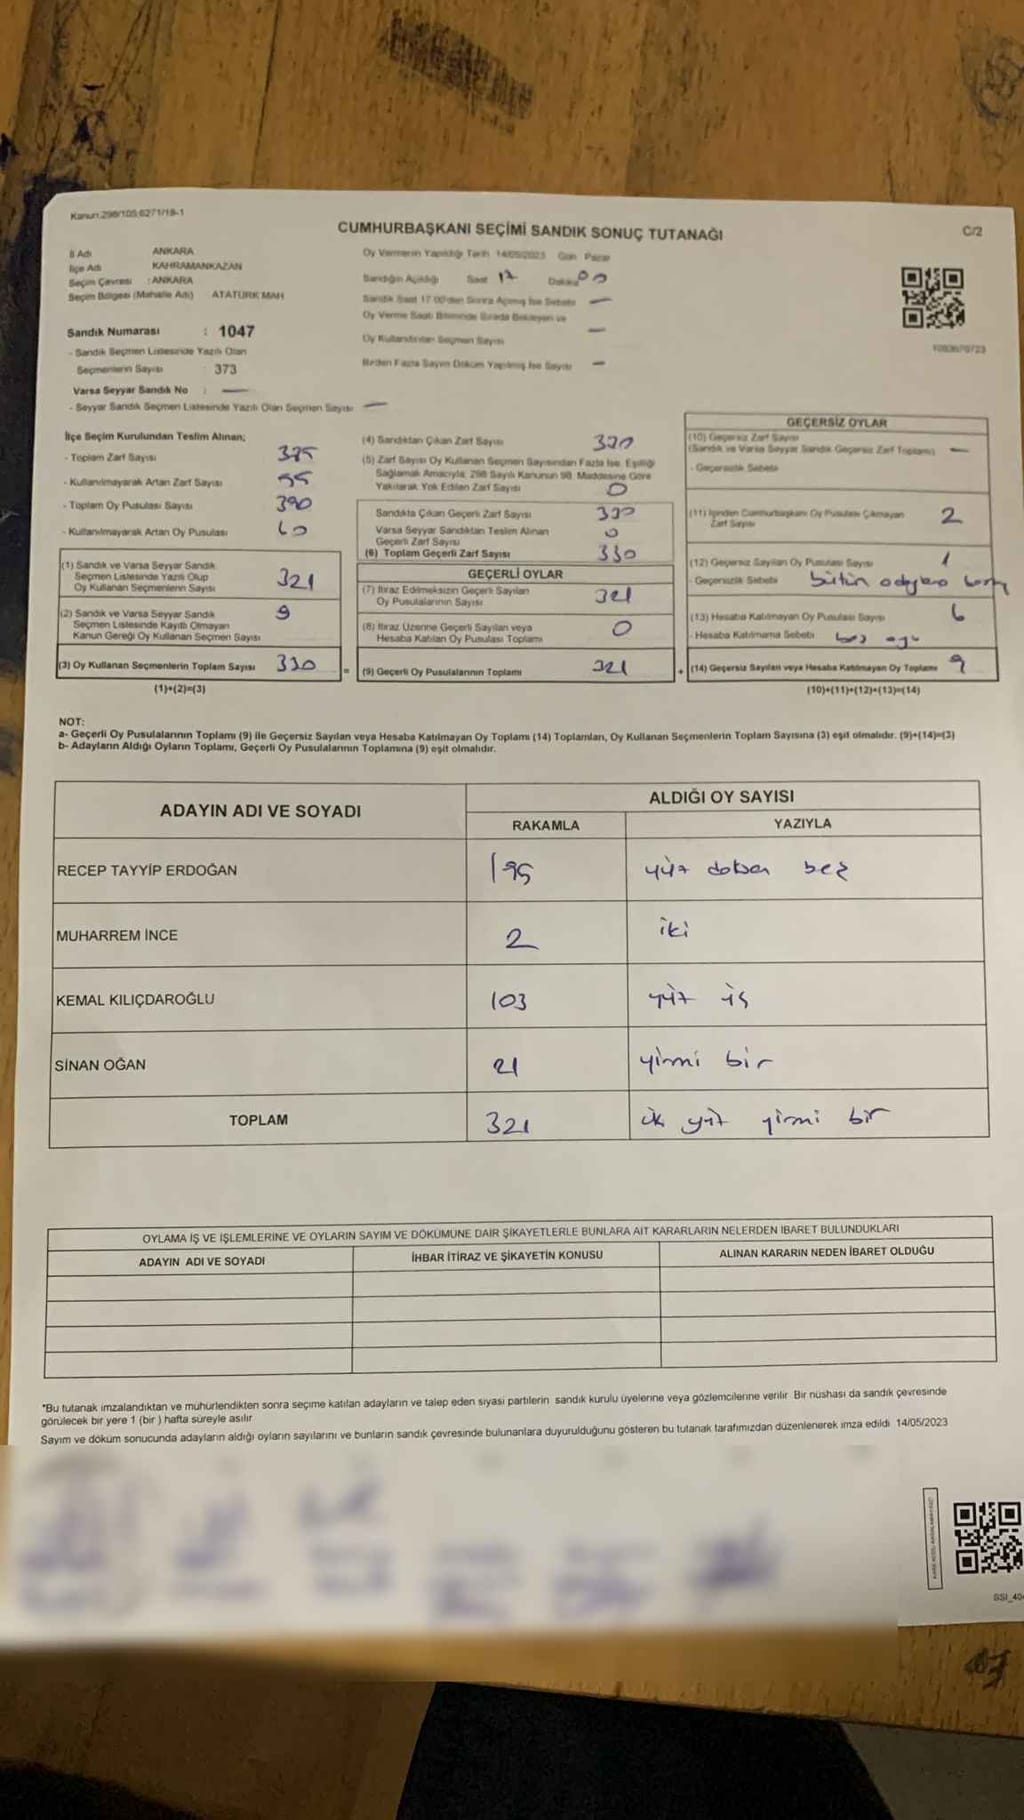 Kanun:298/105;6271/18-1
CUMHURBAŞKANI SEÇİMİ SANDIK SONUÇ TUTANAĞI
C/2
İl Adı ANKARA
İlçe Adı KAHRAMANKAZAN
Seçim Çevresi : ANKARA
Seçim Bölgesi (Mahalle Adı) ATATÜRK MAH
Oy Vermenin Yapıldığı Tarih 14/05/2023 Gün Pazar
Sandığın Açıldığı Saat 17 Dakika 00
Sandık Saat 17:00'den Sonra Açılmış İse Sebebi —
Oy Verme Saati Bitiminde Sırada Bekleyen ve
Oy Kullandırılan Seçmen Sayısı —
Birden Fazla Sayım Döküm Yapılmış İse Sayısı —
Sandık Numarası : 1047
- Sandık Seçmen Listesinde Yazılı Olan
Seçmenlerin Sayısı : 373
Varsa Seyyar Sandık No : —
- Seyyar Sandık Seçmen Listesinde Yazılı Olan Seçmen Sayısı —
İlçe Seçim Kurulundan Teslim Alınan;
- Toplam Zarf Sayısı
- Kullanılmayarak Artan Zarf Sayısı
- Toplam Oy Pusulası Sayısı 390
- Kullanılmayarak Artan Oy Pusulası 60
(1) Sandık ve Varsa Seyyar Sandık
Seçmen Listesinde Yazılı Olup
Oy Kullanan Seçmenlerin Sayısı 321
(2) Sandık ve Varsa Seyyar Sandık
Seçmen Listesinde Kayıtlı Olmayan
Kanun Gereği Oy Kullanan Seçmen Sayısı 9
(3) Oy Kullanan Seçmenlerin Toplam Sayısı 330 =
(1)+(2)=(3)
(4) Sandıktan Çıkan Zarf Sayısı 330
(5) Zarf Sayısı Oy Kullanan Seçmen Sayısından Fazla İse, Eşitliği
Sağlamak Amacıyla, 298 Sayılı Kanunun 98. Maddesine Göre
Yakılarak Yok Edilen Zarf Sayısı 0
Sandıkta Çıkan Geçerli Zarf Sayısı 330
Varsa Seyyar Sandıktan Teslim Alınan
Geçerli Zarf Sayısı 0
(6) Toplam Geçerli Zarf Sayısı 330
GEÇERLİ OYLAR
(7) İtiraz Edilmeksizin Geçerli Sayılan
Oy Pusulalarının Sayısı 321
(8) İtiraz Üzerine Geçerli Sayılan veya
Hesaba Katılan Oy Pusulası Toplamı 0
(9) Geçerli Oy Pusulalarının Toplamı 321 +
GEÇERSİZ OYLAR
(10) Geçersiz Zarf Sayısı
(Sandık ve Varsa Seyyar Sandık Geçersiz Zarf Toplamı) —
- Geçersizlik Sebebi
(11) İçinden Cumhurbaşkanı Oy Pusulası Çıkmayan
Zarf Sayısı 2
(12) Geçersiz Sayılan Oy Pusulası Sayısı 1
- Geçersizlik Sebebi bütün
(13) Hesaba Katılmayan Oy Pusulası Sayısı 6
- Hesaba Katılmama Sebebi
(14) Geçersiz Sayılan veya Hesaba Katılmayan Oy Toplamı 9
(10)+(11)+(12)+(13)=(14)
NOT:
a- Geçerli Oy Pusulalarının Toplamı (9) ile Geçersiz Sayılan veya Hesaba Katılmayan Oy Toplamı (14) Toplamları, Oy Kullanan Seçmenlerin Toplam Sayısına (3) eşit olmalıdır. (9)+(14)=(3)
b- Adayların Aldığı Oyların Toplamı, Geçerli Oy Pusulalarının Toplamına (9) eşit olmalıdır.
ADAYIN ADI VE SOYADI
ALDIĞI OY SAYISI
RAKAMLA YAZIYLA
RECEP TAYYİP ERDOĞAN 195 yüz doksan beş
MUHARREM İNCE 2 iki
KEMAL KILIÇDAROĞLU 103 yüz üç
SİNAN OĞAN 21 yirmi bir
TOPLAM 321 üç yüz yirmi bir
OYLAMA İŞ VE İŞLEMLERİNE VE OYLARIN SAYIM VE DÖKÜMÜNE DAİR ŞİKAYETLERLE BUNLARA AİT KARARLARIN NELERDEN İBARET BULUNDUKLARI
ADAYIN ADI VE SOYADI İHBAR İTİRAZ VE ŞİKAYETİN KONUSU ALINAN KARARIN NEDEN İBARET OLDUĞU
*Bu tutanak imzalandıktan ve mühürlendikten sonra seçime katılan adayların ve talep eden siyasi partilerin sandık kurulu üyelerine veya gözlemcilerine verilir. Bir nüshası da sandık çevresinde
görülecek bir yere 1 (bir ) hafta süreyle asılır
Sayım ve döküm sonucunda adayların aldığı oyların sayılarını ve bunların sandık çevresinde bulunanlara duyurulduğunu gösteren bu tutanak tarafımızdan düzenlenerek imza edildi 14/05/2023